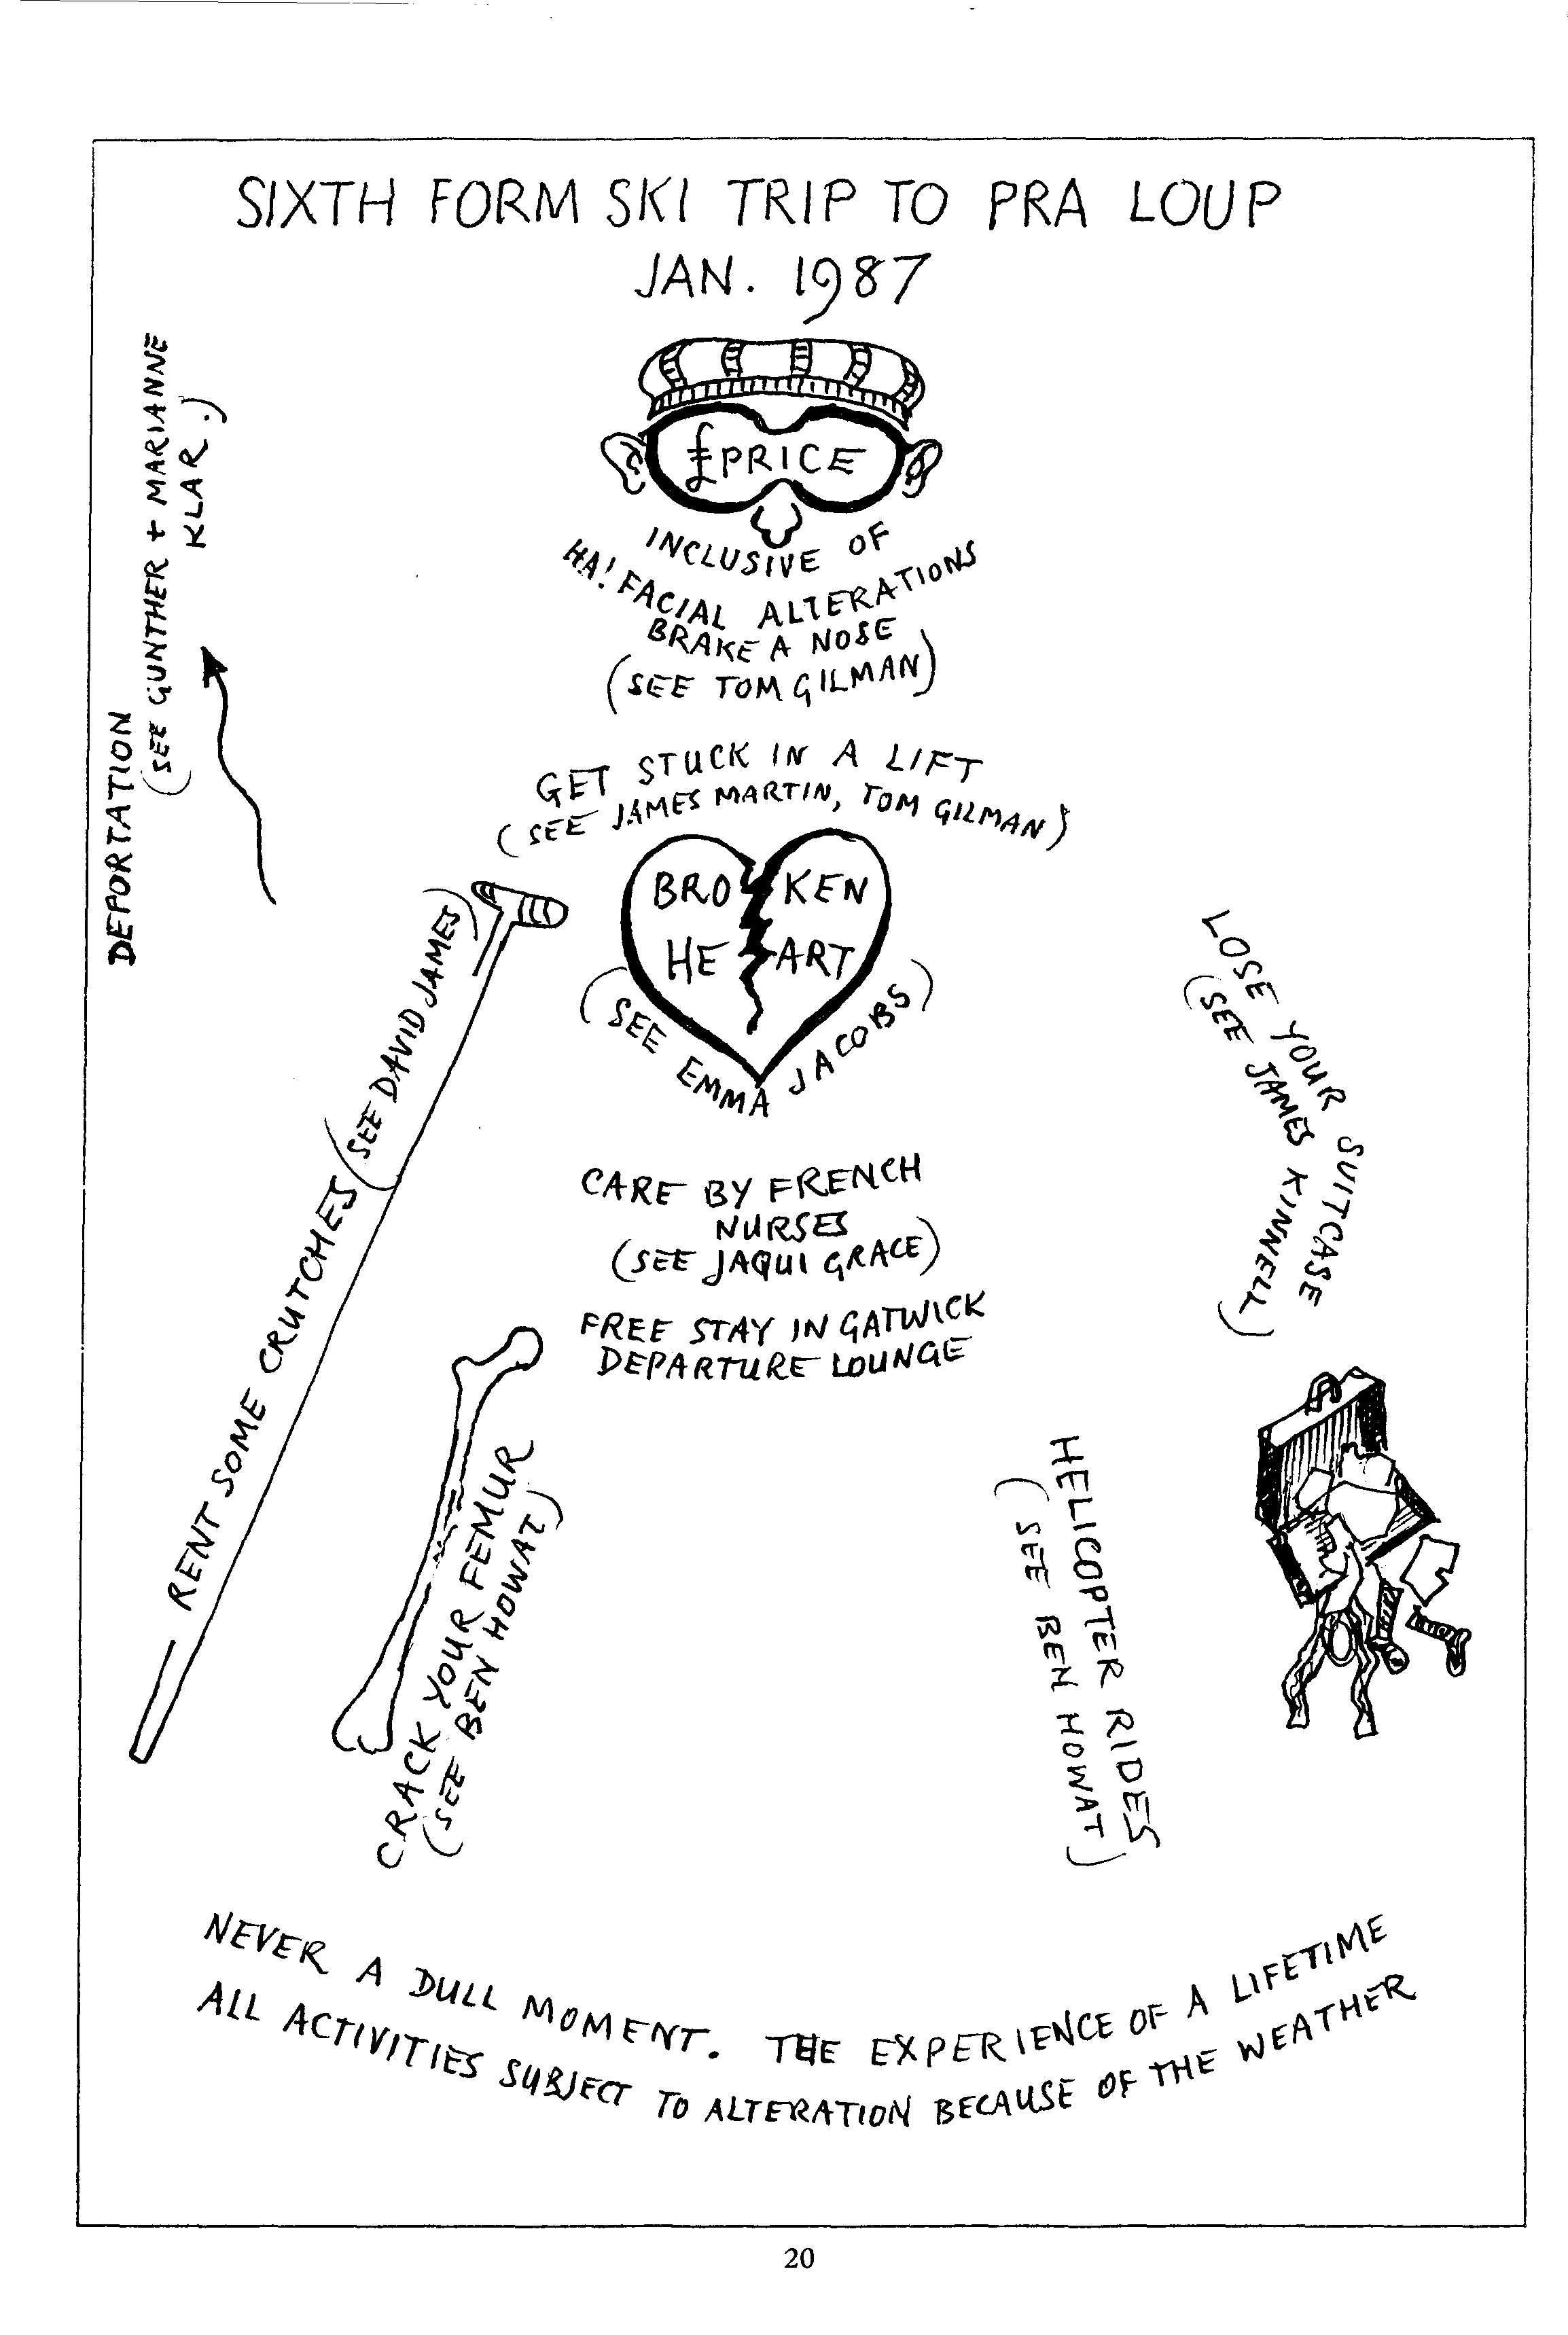 SIXTH FORM SKI TRIP TO PRA LOUP
JAN. 1987
£PRICE
INCLUSIVE OF
HA! FACIAL ALTERATIONS
BRAKE A NOSE
(SEE TOM GILMAN)
DEPORTATION
(SEE GUNTHER + MARIANNE
KLAR.)
GET STUCK IN A LIFT
(SEE JAMES MARTIN, TOM GILMAN)
BROKEN
HEART
(SEE EMMA JACOBS)
RENT SOME CRUTCHES (SEE DAVID JAMES)
LOSE YOUR SUITCASE
(SEE JAMES KINNELL)
CARE BY FRENCH
NURSES
(SEE JAQUI GRACE)
FREE STAY IN GATWICK
DEPARTURE LOUNGE
CRACK YOUR FEMUR
(SEE BEN HOWAT)
HELICOPTER RIDES
(SEE BEN HOWAT)
NEVER A DULL MOMENT. THE EXPERIENCE OF A LIFETIME
ALL ACTIVITIES SUBJECT TO ALTERATION BECAUSE OF THE WEATHER
20